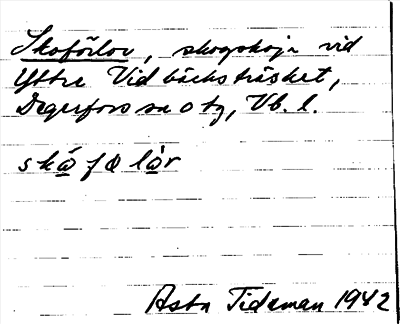 Skoförlov, skogskoja vid
Yttre Vidbäcksträsket,
Degerfors sn o tg, Vb. l.
skå fø làr
Asta Tideman 1942